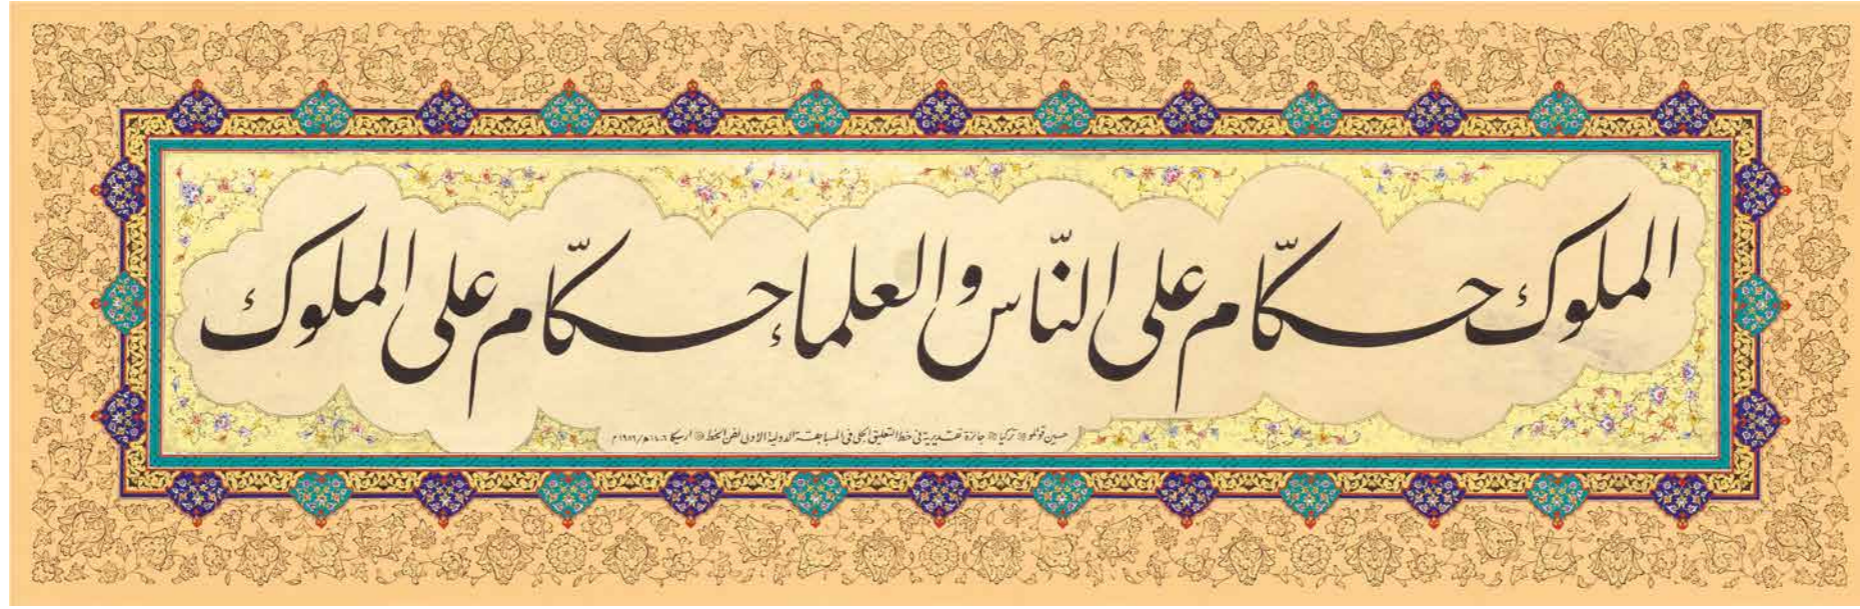 الملوك حكّام على النّاس والعلماء حكّام على الملوك
حسين قوتلو تركيا جائزة تقديرية في خط التعليق الجلي في المسابقة الدولية الاولى لفن الخط ارسيكا ١٤٠٦ھ/١٩٨٦م